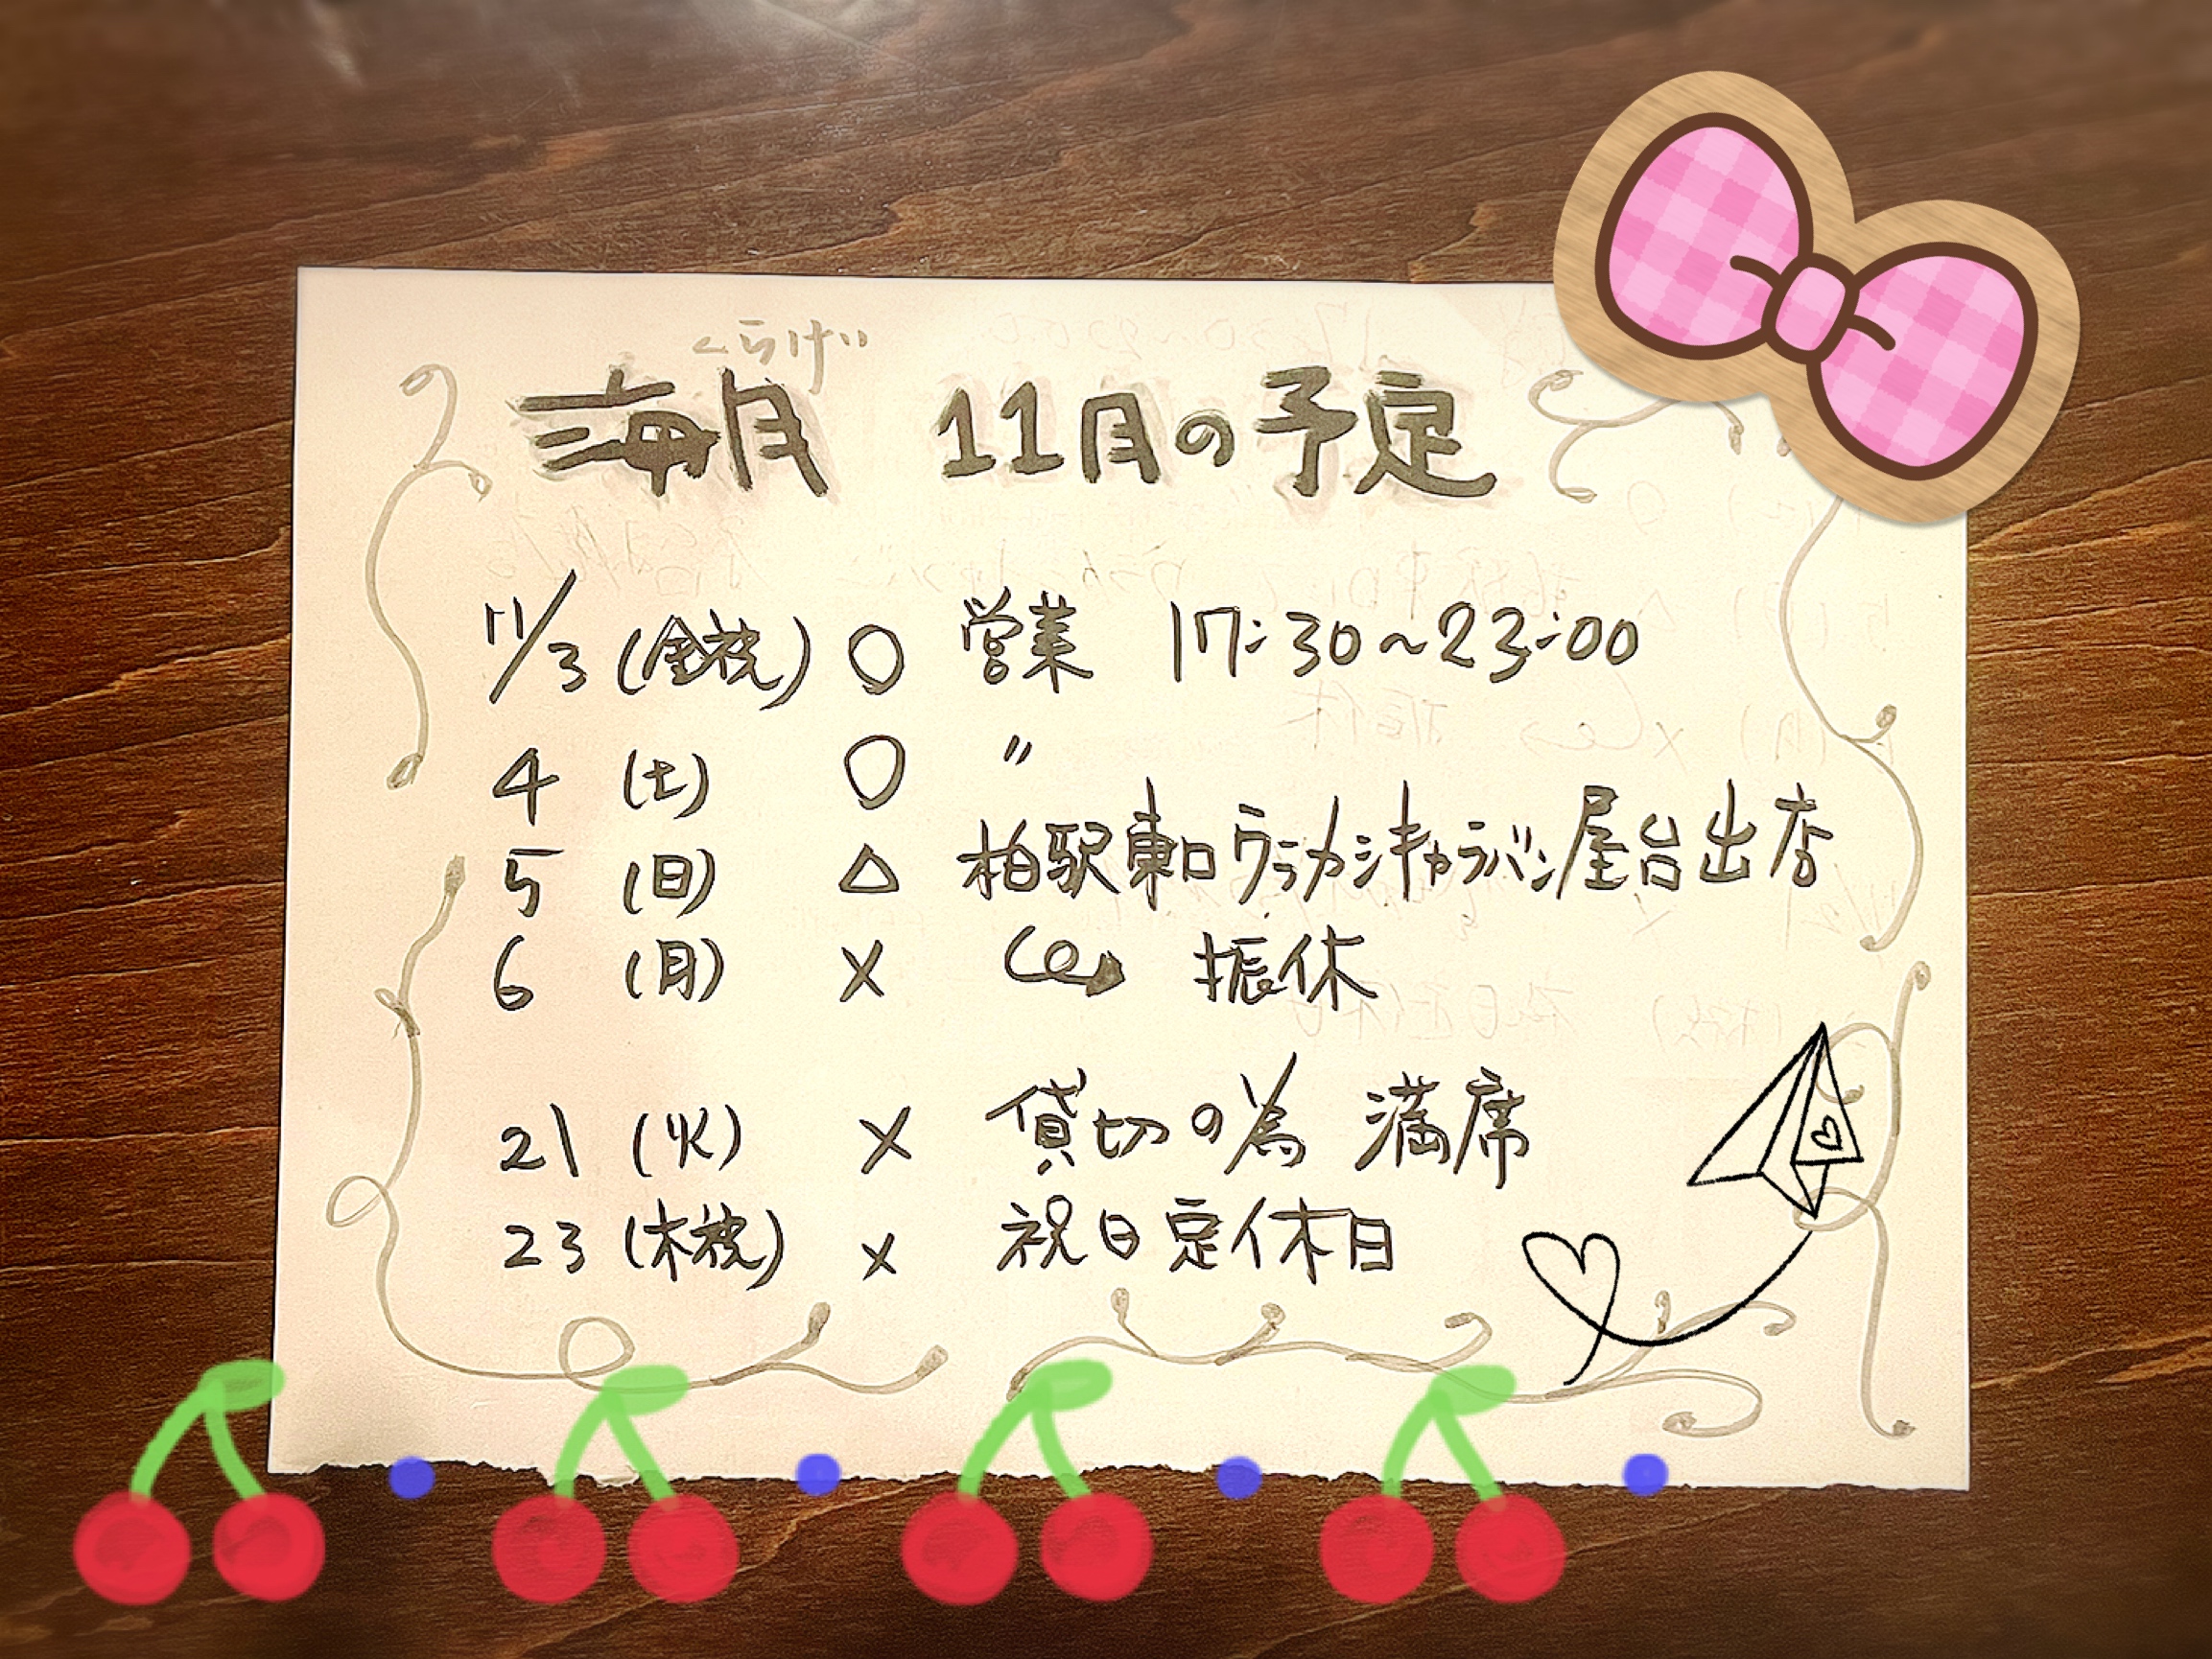 くらげ
海月 11月の予定
11/3 (金祝) ○ 営業 17:30~23:00
4 (土) ○ 〃
5 (日) △ 柏駅東口ウラカシキャラバン屋台出店
6 (月) × 振休
21 (火) × 貸切の為 満席
23 (木祝) × 祝日定休日